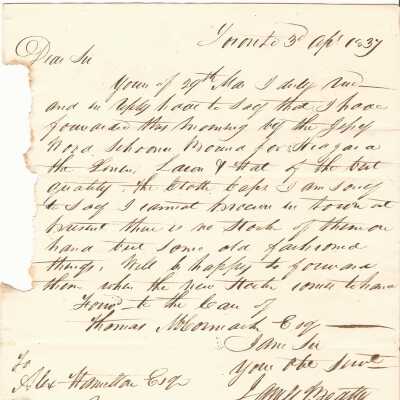 Toronto 3d Apl 1837
Dear Sir
Yours of 29th Mar I duly recd
and in reply have to say that I have
forwarded this morning by the
Schooner bound for Niagara
the Linen, Lawn & Hat of the best
quality. the Cloth Caps I am sorry
to say I cannot procure in town at
present there is no Stock of them on
hand but some old fashioned
things, Will be happy to forward
them when the new Stock comes to hand
Forwd to the Care of
Thomas McCormack Esq
I am Sir
Your Obt Servt
James Beatty
To
Alex Hamilton Esqr